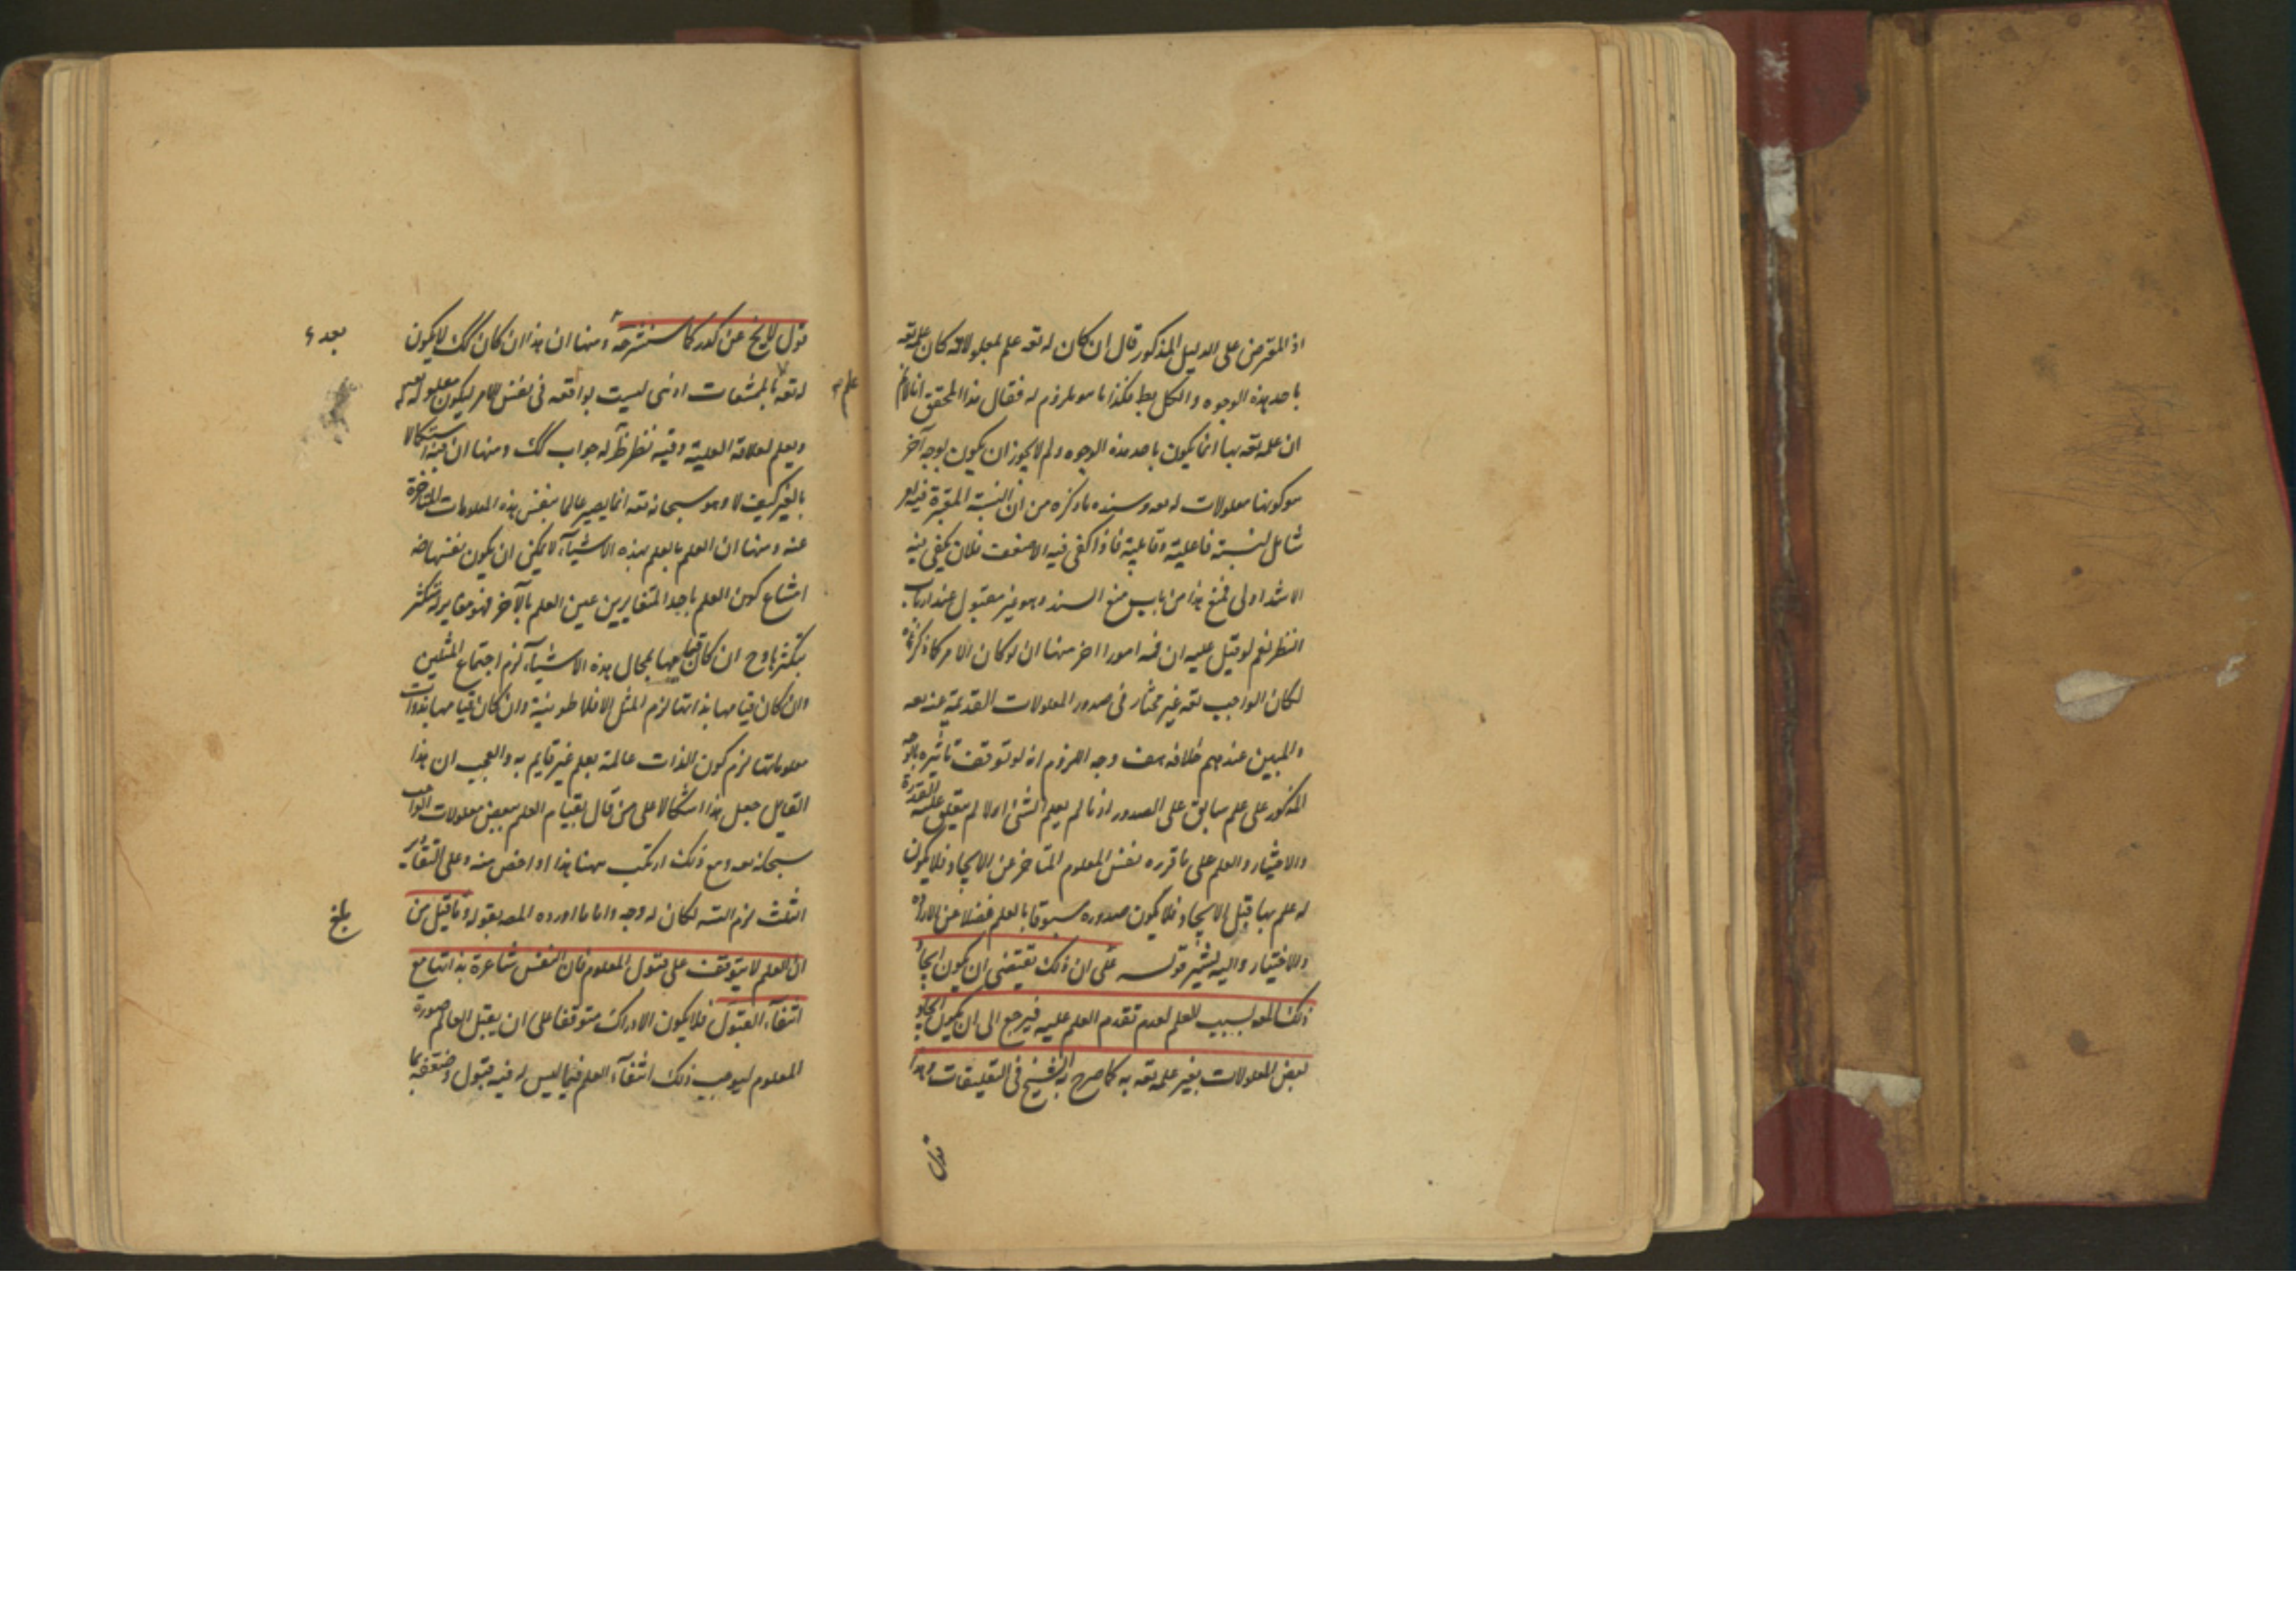 اذ المعترض على الدليل المذكور قال ان كان له تعه علم بمعلولاته كان علمه تعه
باحد هذه الوجوه والكل بط فكذا ما هو ملزوم له فقال هذا المحقق انا لانم
ان علمه تعه بها انما يكون باحد هذه الوجوه ولم لا يجوز ان يكون بوجه آخر
هو كونها معلولات له تعه وسنده ما ذكره من ان النسبة المعتبرة فيه
شامل لنسبة فاعلية وقابلية فاذا كفى فيه الاضعف فلان يكفى فيه
الاشد اولى فمنع هذا من باب منع السند وهو غير مقبول عند ارباب
النظر نعم لو قيل عليه ان فيه امورا اخر منها ان لو كان الامر كما ذكرتم
لكان الواجب تعه غير مختار فى صدور المعلولات القديمة عنه تعه
والمبين عندهم خلافه هف وجه اللزوم انه لو توقف تاثيره بالوجه
المذكور على علم سابق على الصدور اذ ما لم يعلم الشئ اولا لم يتعلق عليه القدرة
والاختيار والعلم على ما قرره نفس المعلوم المتاخر عن الايجاد فلا يكون
له علم بها قبل الايجاد فلا يكون صدوره مسبوقا بالعلم فضلا عن الارادة
والاختيار واليه يشير قوله على ان ذلك يقتضى ان يكون ايجاد
ذلك المعه لسبب العلم لعدم تقدم العلم عليه فيرجع الى ان يكون ايجاد
بعض المعلولات بغير علمه تعه به كما صرح به الشيخ فى التعليقات وهذا
قول
قول لا يخ عن كدر كما سنشرحه ومنها ان هذا ان كان كك لا يكون
له تعه علم بالممتنعات اذ هى ليست بواقعه فى نفس الامر ليكون معلوله له
ويعلم لعلاقة العلية وفيه نظر ظ له جواب كك ومنها ان فيه استكمالا
بالغير كيف لا وهو سبحانه تعه انما يصير عالما بنفس هذه المعلومات المتاخرة
عنه ومنها ان العلم بالعلم بهذه الاشياء لا يمكن ان يكون نفسها ضه
امتناع كون العلم باحد المتغايرين عين العلم بالآخر فهو مغاير له متكثر
بتكثرها وح ان كان قيامها بمحال هذه الاشياء لزم اجتماع المثلين
وان كان قيامها بذاتها لزم المثل الافلاطونية وان كان قيامها بذوات
معلوماتها لزم كون الذات عالمة بعلم غير قايم به والعجب ان هذا
القايل جعل هذا اشكالا على من قال بقيام العلم ببعض معلولات الواجب
سبحانه تعه ومع ذلك ارتكب ههنا هذا او افحش منه وعلى التقادير
الثلث لزم التسه لكان له وجه واما ما اورده المصه بقوله وما قيل من
ان العلم لا يتوقف على قبول المعلوم فان النفس شاعرة بذاتها مع
انتفاء القبول فلا يكون الادراك متوقفا على ان يقبل العالم صورة
المعلوم ليوجب ذلك انتفاء العلم فيما ليس له فيه قبول وضعفه بما
علم
بعد
بلغ